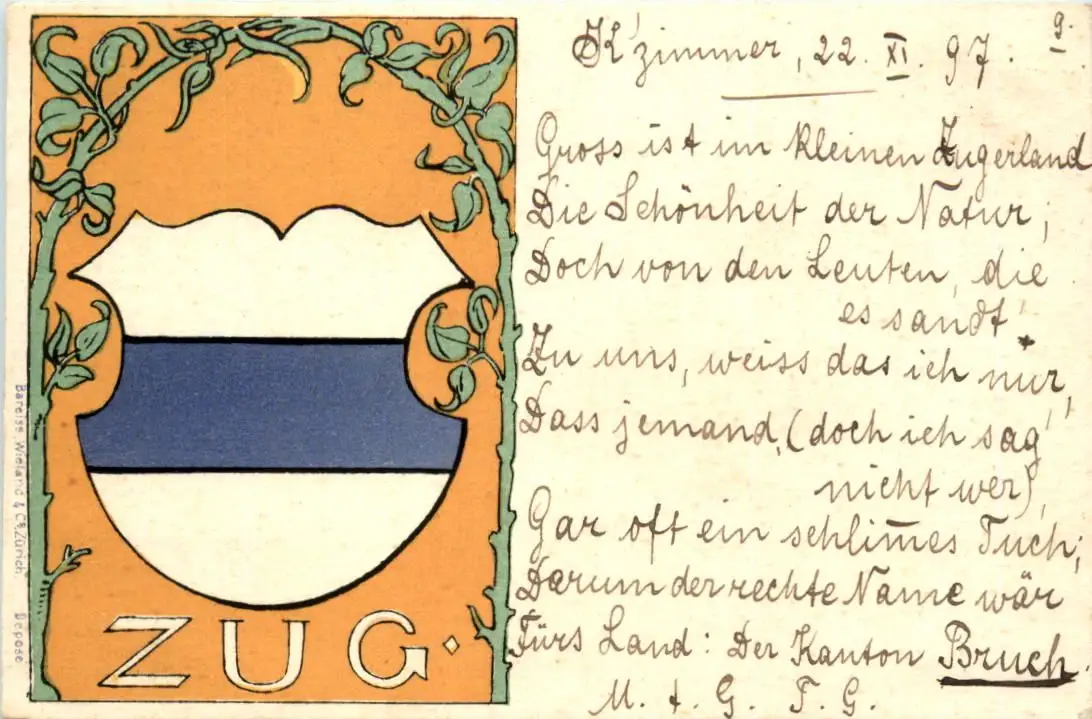 K'zimmer, 22. XI. 97.
9.
Gross ist im kleinen Zugerland
Die Schönheit der Natur;
Doch von den Leuten, die
es sandt'
Zu uns, weiss das ich nur,
Dass jemand, (doch ich sag'
nicht wer),
Gar oft ein schlim̄es Tuch;
Darum der rechte Name wär
Fürs Land: Der Kanton Bruch.
M. t. G. F. G.
ZUG.
Bareiss, Wieland & Cº, Zürich.
Déposé